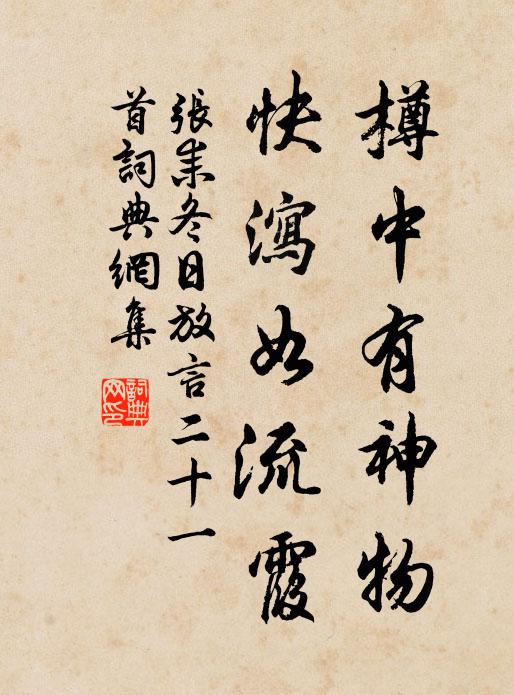 樽中有神物
快瀉如流霞
張耒冬日放言二十一
首詞典網集
詞典
网印